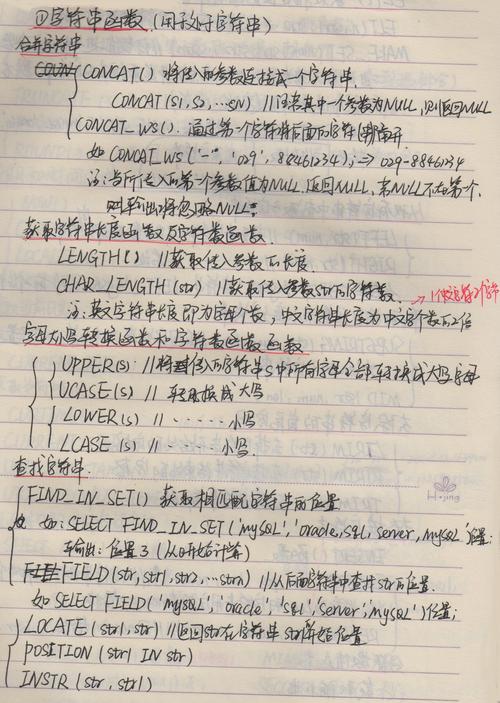 ①字符串函数 (用于处字符串)
合并字符串
CONCAT() 将传入的参数连接成一个字符串.
CONCAT(S1,S2,…SN) //注:若其中一个参数为NULL,则返回NULL
CONCAT_WS(). 通过第一个字符将后面的字符隔开.
如 CONCAT_WS('-','029',88461234);=> 029-88461234
注:当所传入的第一个参数值为NULL.返回NULL,若NULL不在第一个.
则输出将忽略NULL.
获取字符串长度函数及字符数函数.
LENGTH() //获取传入参数的长度.
CHAR_LENGTH(str) //获取传入参数str的字符数. →1个中文字符2个字节
注:英文字符串长度即为字母个数,中文字符串长度为中文个数的2倍
字母大小写转换函数和字符数函数函数
UPPER(s) //将传入的字符串s中所有字母全部转换成大写字母
UCASE(s) // 转换成大写
LOWER(s) // ······小写.
LCASE(s) // ······小写.
查找字符串.
FIND_IN_SET() 获取相匹配字符串的位置
如:SELECT FIND_IN_SET('mySQL','oracle,sql,server,mySQL')位置;
输出:位置3 (从0开始计算)
FIELD(str,str1,str2,…strn) //从后面字符串中查找str的位置.
如 SELECT FIELD('mySQL','oracle','sql','server','mySQL')位置;
LOCATE(str1,str) //返回str在字符串str开始位置
POSITION(str1 IN str)
INSTR(str,str1)